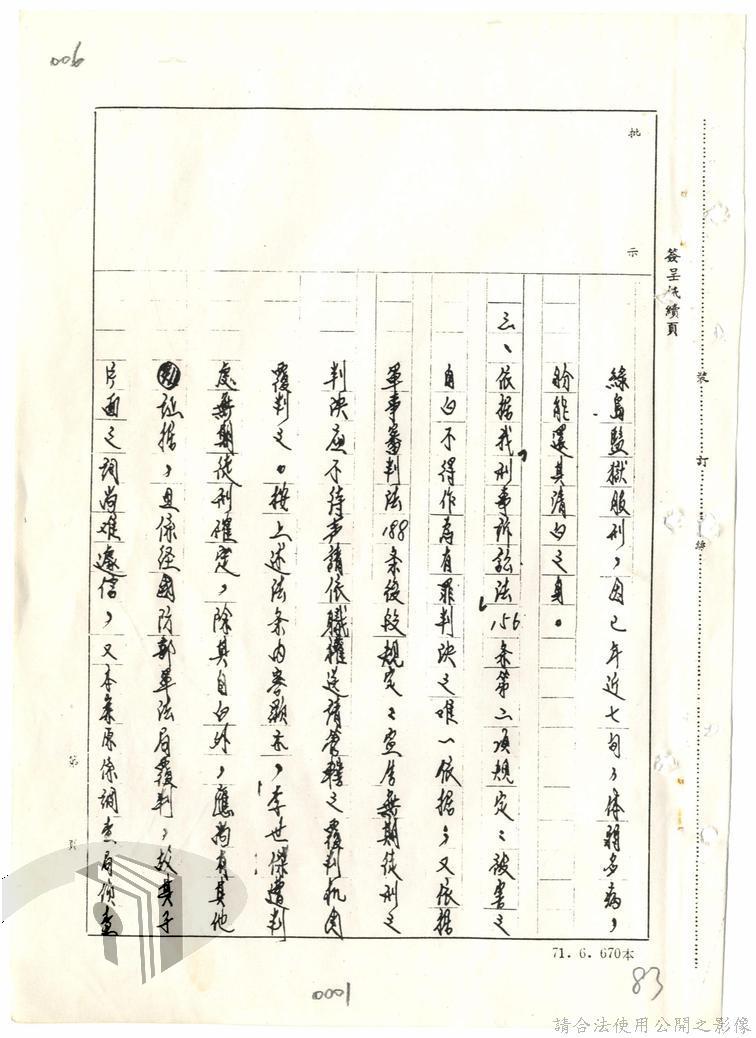 006
批示
簽呈續頁
裝訂線
綠島監獄服刑，因已年近七旬，体弱多病，
盼能還其清白之身。
三、依据我刑事訴訟法156条第二項規定：被害之
自白不得作為有罪判決之唯一依据，又依据
軍事審判法188条後段規定：宣告無期徒刑之
判決應不待声請依職權送請管轄之覆判机関
覆判之。按上述法条内容顯示，李世傑遭判
處無期徒刑確定，除其自白外，應尚有其他
証据，且係经國防部軍法局覆判，故其子
片面之詞尚难遽信，又本案原係調查局偵查
第 頁
71．6．670本
0001
83
請合法使用公開之影像